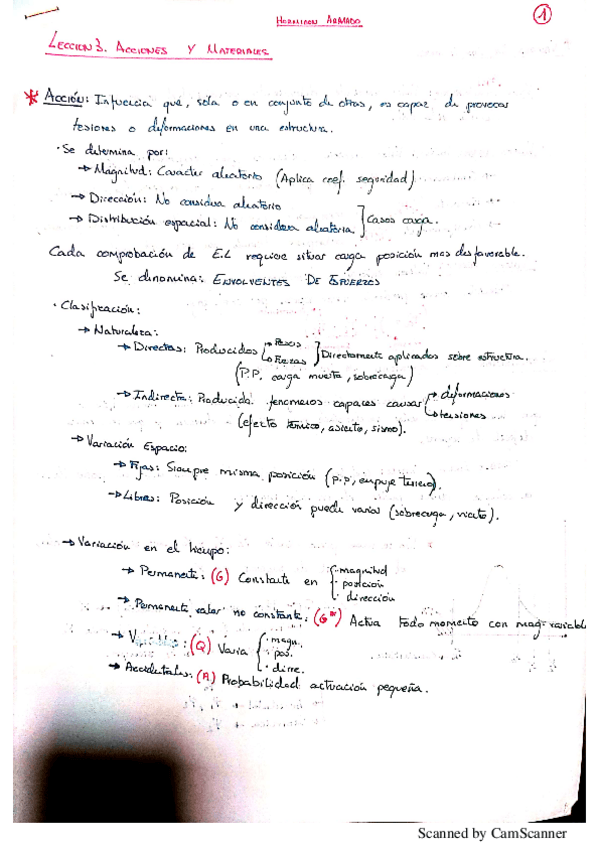 HORMIGON ARMADO
1
LECCION 3. ACCIONES Y MATERIALES
* ACCIÓN: Influencia que, sola o en conjunto de otras, es capaz de provocar
tesiones o deformaciones en una estructura.
· Se determina por:
→ Magnitud: Caracter aleatorio (Aplica coef. seguridad)
→ Dirección: No considera aleatorio
→ Distribución espacial: No considera aleatoria ] Casos carga.
Cada comprobación de E.L requiere situar carga posición mas desfavorable.
Se dinomina: ENVOLVENTES DE ESFUERZOS
· Clasificación:
→ Naturaleza:
→ Directas: Producidos → Pesos → Fuerzas ] Directamente aplicados sobre estructura.
(P.P. carga muerta, sobrecarga)
→ Indirecta: Producida fenomenos capaces causar → deformaciones → tensiones
(efecto térmico, asiento, sismo).
→ Variación Espacio:
→ Fijas: Siempre misma posición (P.P, empuje terreno).
→ Libres: Posición y dirección puede varias (sobrecarga, viento).
→ Variación en el tiempo:
→ Permanente: (G) Constante en { · magnitud · posición · dirección
→ Permanente valor no constante: (G*) Actua todo momento con mag. variable
→ (Q) Varia { · magn. · pos. · dirre.
→ Accidentales: (A) Probabilidad actuación pequeña.
Scanned by CamScanner